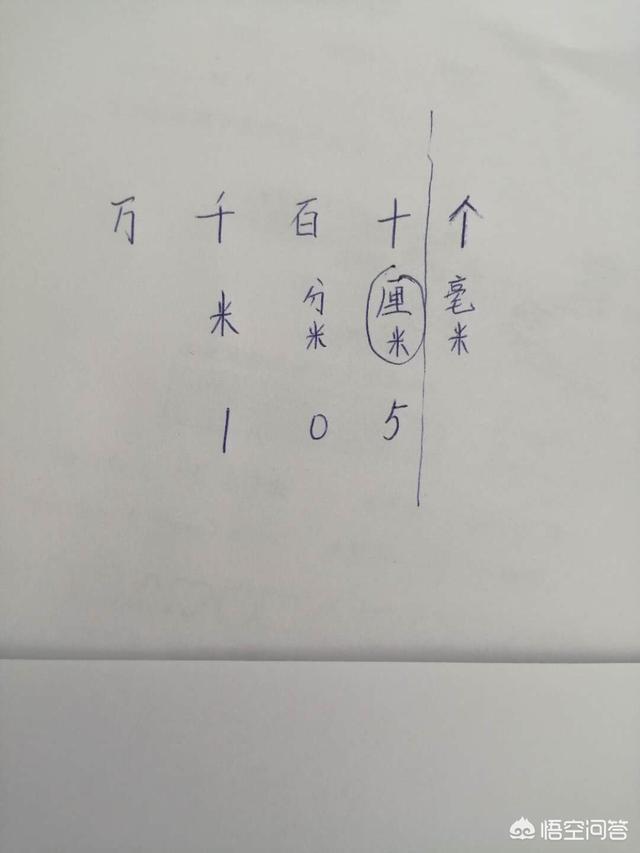 万 千 百 十 个
米 分米 厘米 毫米
1 0 5
悟空问答